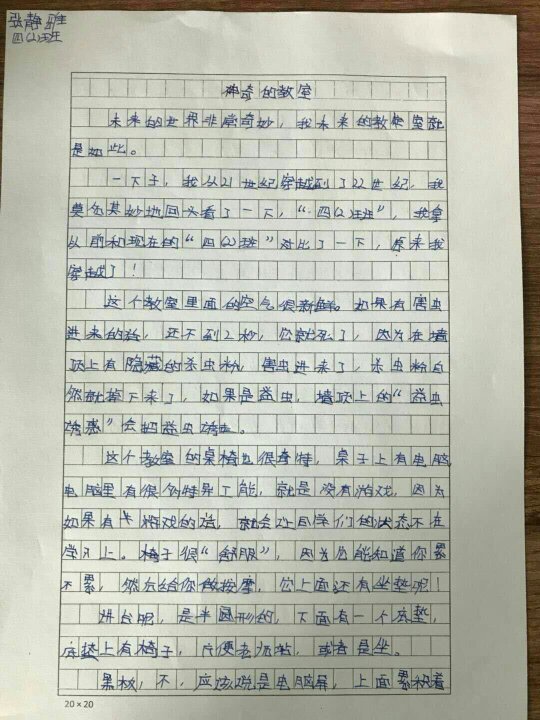 张静雅
四(2)班
神奇的教室
未来的世界非常奇妙，我未来的教室就
是如此。
一下子，我从21世纪穿越到了22世纪，我
莫名其妙地回头看了一下，“四(2)班”，我拿
以前和现在的“四(2)班”对比了一下，原来我
穿越了！
这个教室里面的空气很新鲜。如果有害虫
进来的话，还不到2秒，它就死了，因为在墙
顶上有隐藏的杀虫粉，害虫进来了，杀虫粉自
然就掉下来了，如果是益虫，墙顶上的“益虫
诱惑”会把益虫诱走。
这个教室的桌椅也很奇特，桌子上有电脑，
电脑里有很多特异工能，就是没有游戏，因为
如果有游戏的话，就会让同学们的状态不在
学习上。椅子很“舒服”，因为它能知道你累
不累，然后给你做按摩，它上面还有坐垫呢！
讲台呢，是半圆形的，下面有一个底垫，
底垫上有椅子，方便老师站，或者是坐。
黑板，不，应该说是电脑屏，上面累积着
20×20